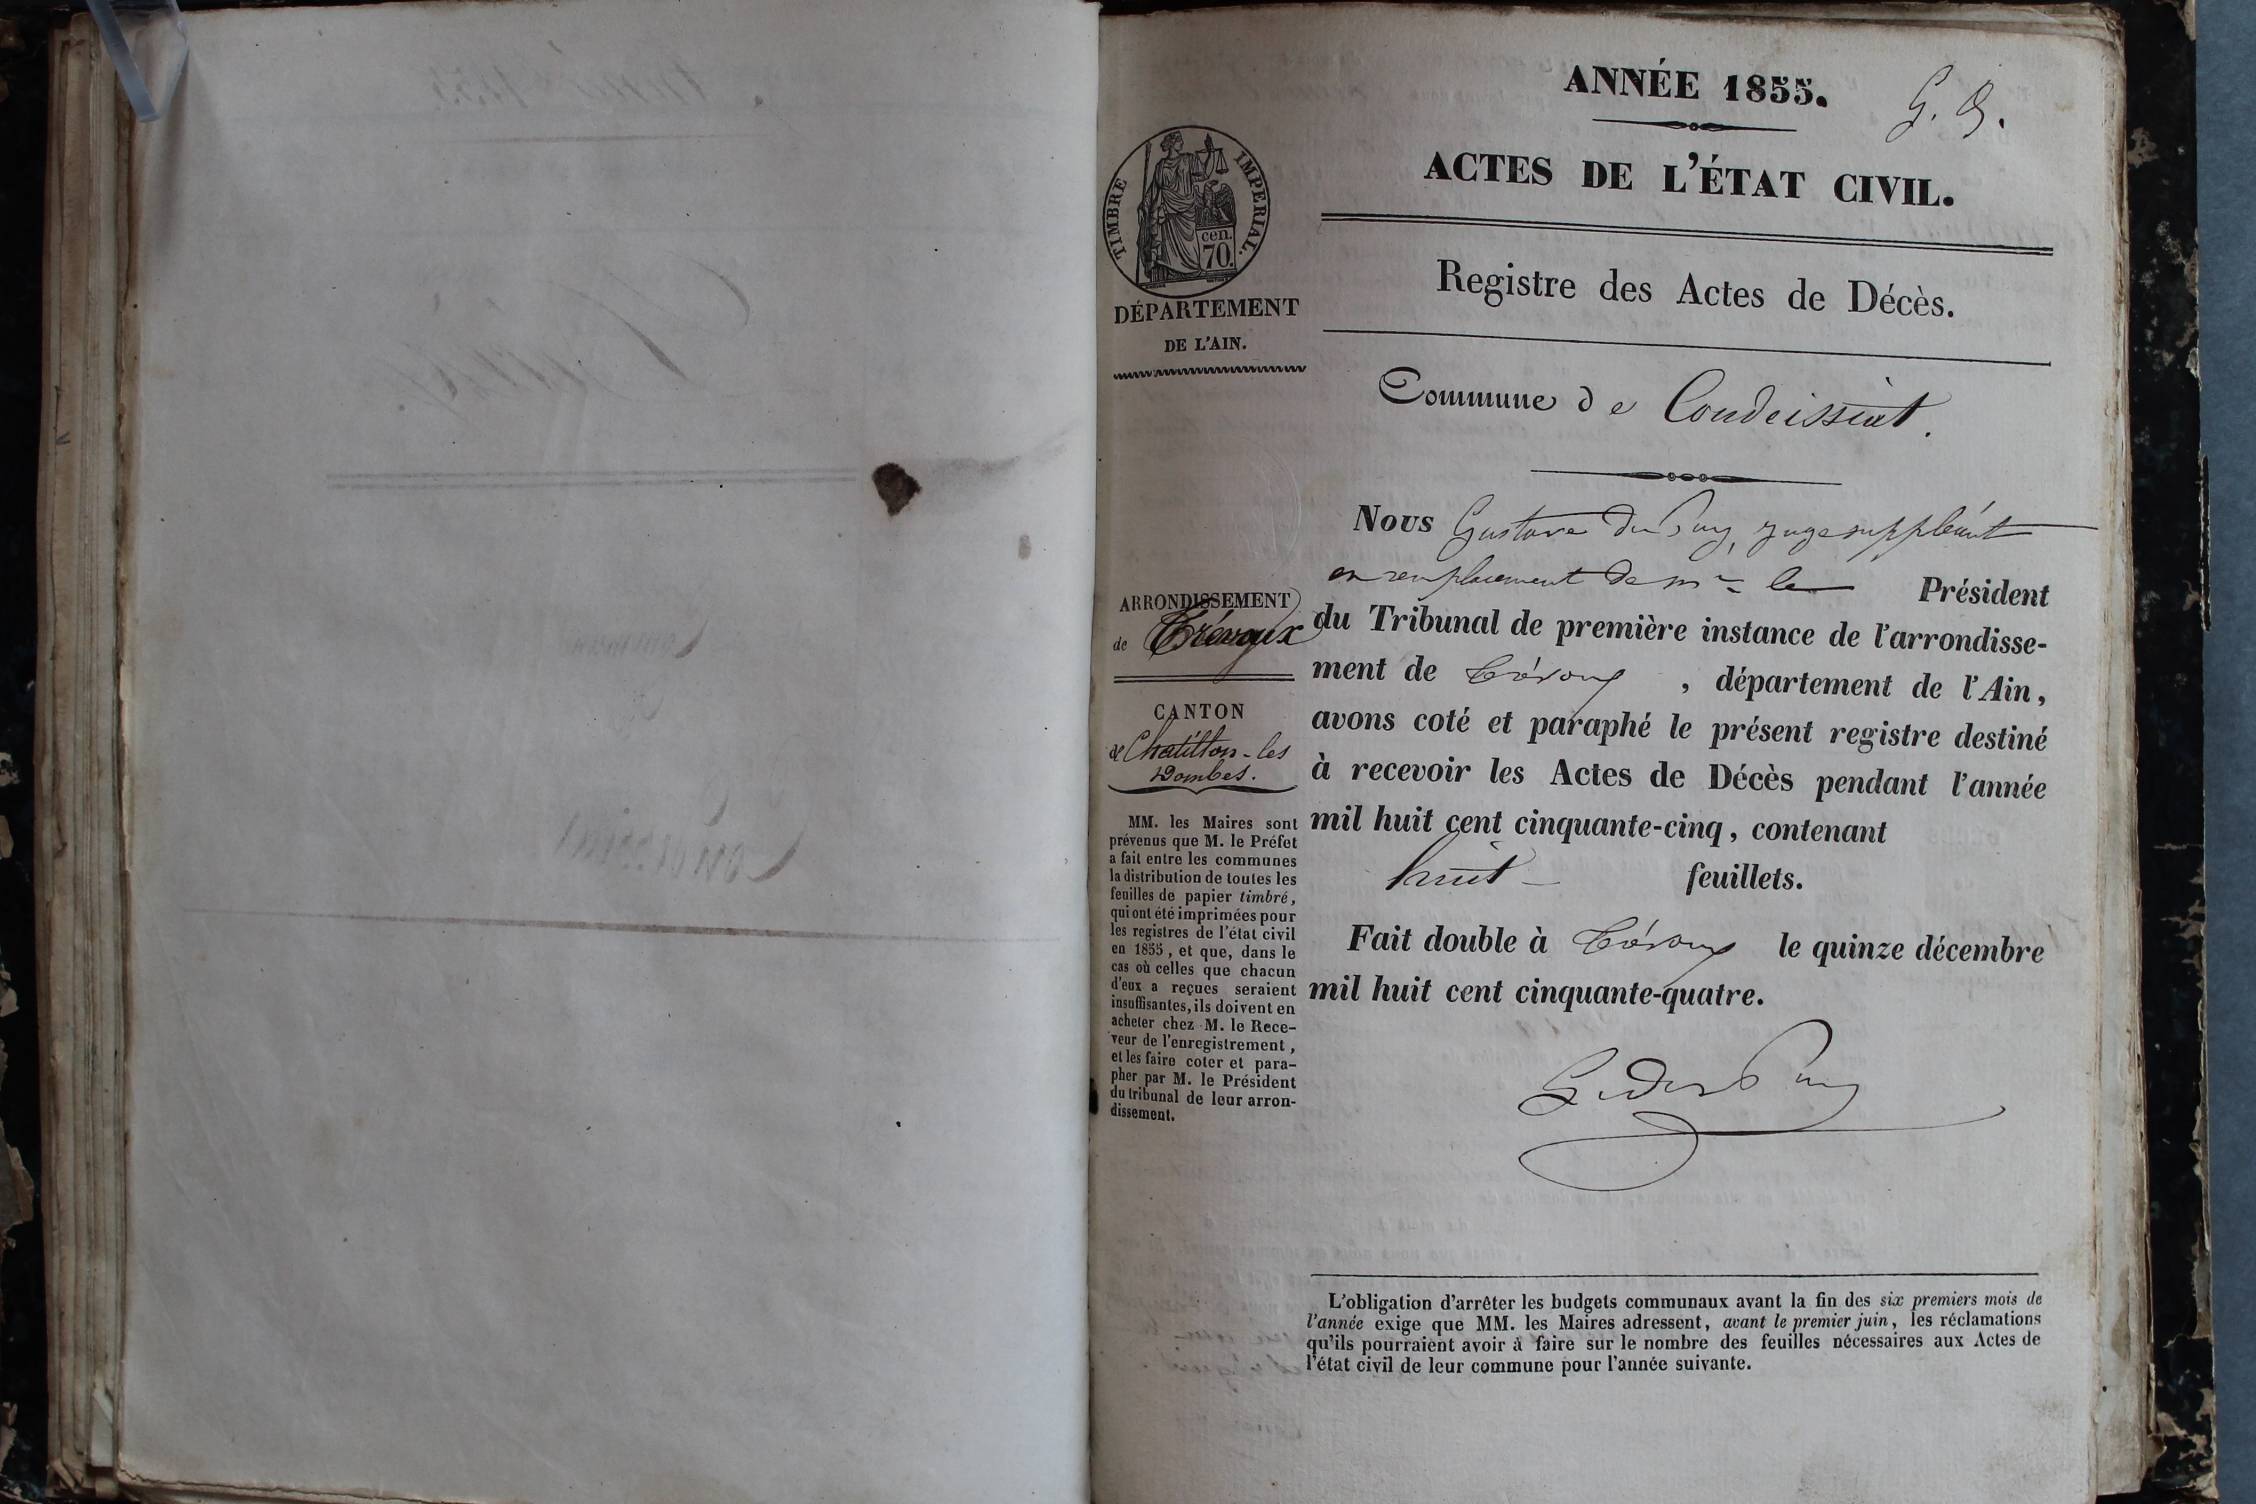 ANNÉE 1855.
ACTES DE L'ÉTAT CIVIL.
Registre des Actes de Décès.
Commune de Condeissiat.
TIMBRE IMPERIAL.
cen.
70.
DÉPARTEMENT
DE L'AIN.
ARRONDISSEMENT
de Trévoux
CANTON
de Chatillon-les
Dombes.
MM. les Maires sont
prévenus que M. le Préfet
a fait entre les communes
la distribution de toutes les
feuilles de papier timbré,
qui ont été imprimées pour
les registres de l'état civil
en 1855, et que, dans le
cas où celles que chacun
d'eux a reçues seraient
insuffisantes, ils doivent en
acheter chez M. le Rece-
veur de l'enregistrement,
et les faire coter et para-
pher par M. le Président
du tribunal de leur arron-
dissement.
Nous Gustave du Puy, juge suppléant
en remplacement de mr le Président
du Tribunal de première instance de l'arrondisse-
ment de Trévoux, département de l'Ain,
avons coté et paraphé le présent registre destiné
à recevoir les Actes de Décès pendant l'année
mil huit cent cinquante-cinq, contenant
huit feuillets.
Fait double à Trévoux le quinze décembre
mil huit cent cinquante-quatre.
G. du Puy
L'obligation d'arrêter les budgets communaux avant la fin des six premiers mois de
l'année exige que MM. les Maires adressent, avant le premier juin, les réclamations
qu'ils pourraient avoir à faire sur le nombre des feuilles nécessaires aux Actes de
l'état civil de leur commune pour l'année suivante.